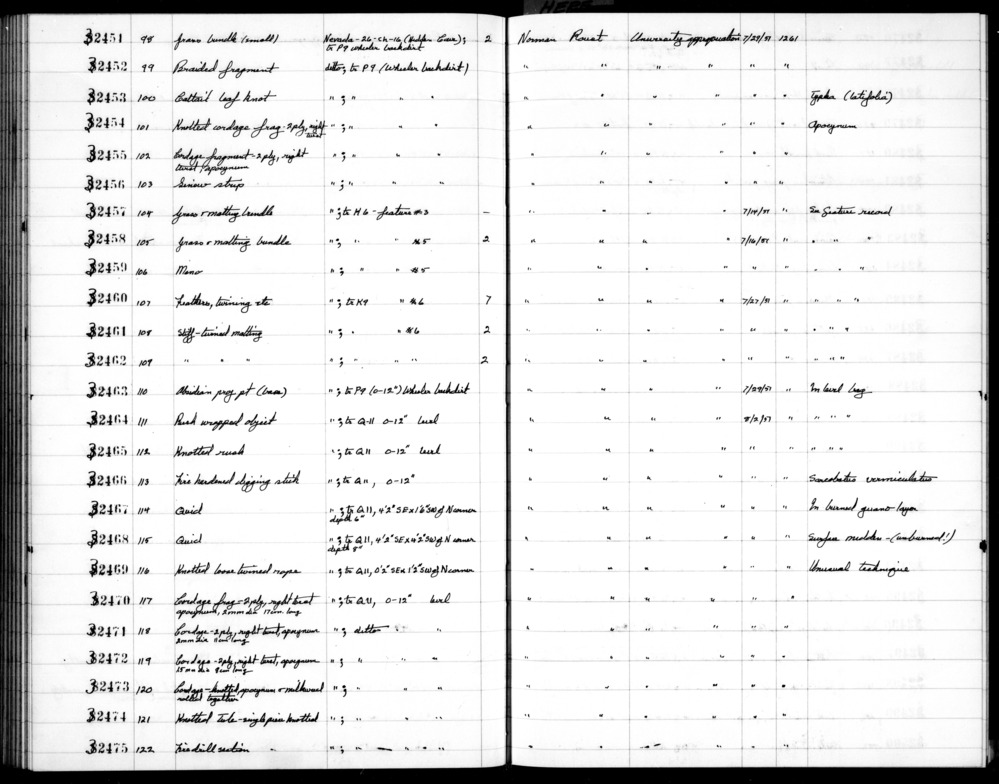 HERE
32451 98 Grass bundle (small) Nevada-26-Ch-16 (Hidden Cave); to P9 Wheeler backdirt 2 Norman Roust University appropriation 7/29/51 1261
32452 99 Braided fragment ditto; to P9 (Wheeler backdirt) " " " " " "
32453 100 Cattail leaf knot " ; " " " " " " " " " Typha (latifolia)
32454 101 Knotted cordage frag-2ply, right twist " ; " " " " " " " " " Apocynum
32455 102 Cordage fragment-2ply, right twist, apocynum " ; " " " " " " " " "
32456 103 Sinew strip " ; " " " " " " " " "
32457 104 Grass & matting bundle " ; to H6 - feature #3 — " " " " 7/14/51 " In feature record
32458 105 Grass & matting bundle " ; " " #5 2 " " " " 7/16/51 " " " "
32459 106 Mano " ; " " #5 " " " " " " " " "
32460 107 Feathers, twining etc " ; to K9 " #6 7 " " " " 7/27/51 " " " "
32461 108 Stiff-twined matting " ; " " #6 2 " " " " " " " " "
32462 109 " " " " ; " " " " 2 " " " " " " " " "
32463 110 Obsidian proj pt (base) " ; to P9 (0-12") Wheeler backdirt " " " " 7/29/51 " In level bag
32464 111 Rush wrapped object " ; to Q-11 0-12" level " " " " 8/2/51 " " " "
32465 112 Knotted rush " ; to Q11 0-12" level " " " " " " " " "
32466 113 Fire hardened digging stick " ; to Q11, 0-12" " " " " " " Sarcobatus vermiculatus
32467 114 Quid " ; to Q11, 4'2" SE x 1'6" SW of N corner depth 6" " " " " " " In burned guano layer
32468 115 Quid " ; to Q11, 4'2" SE x 4'2" SW of N corner depth 8" " " " " " " Surface midden-(unburned!)
32469 116 Knotted loose twined rope " ; to Q11, 0'2" SE x 1'2" SW of N corner " " " " " " Unusual technique
32470 117 Cordage frag-2ply, right twist apocynum, 2mm dia 17cm. long " ; to Q11, 0-12" level " " " " " "
32471 118 Cordage-2ply, right twist, apocynum 2mm dia 11cm long " ; ditto " " " " " " "
32472 119 Cordage-2ply, right twist, apocynum 1.5mm dia 9cm long " ; " " " " " " " " "
32473 120 Cordage-knotted apocynum & milkweed knotted together " ; " " " " " " " " "
32474 121 Knotted Tule-single piece knotted " ; " " " " " " " " "
32475 122 Firedrill section " ; " " " " " " " " "